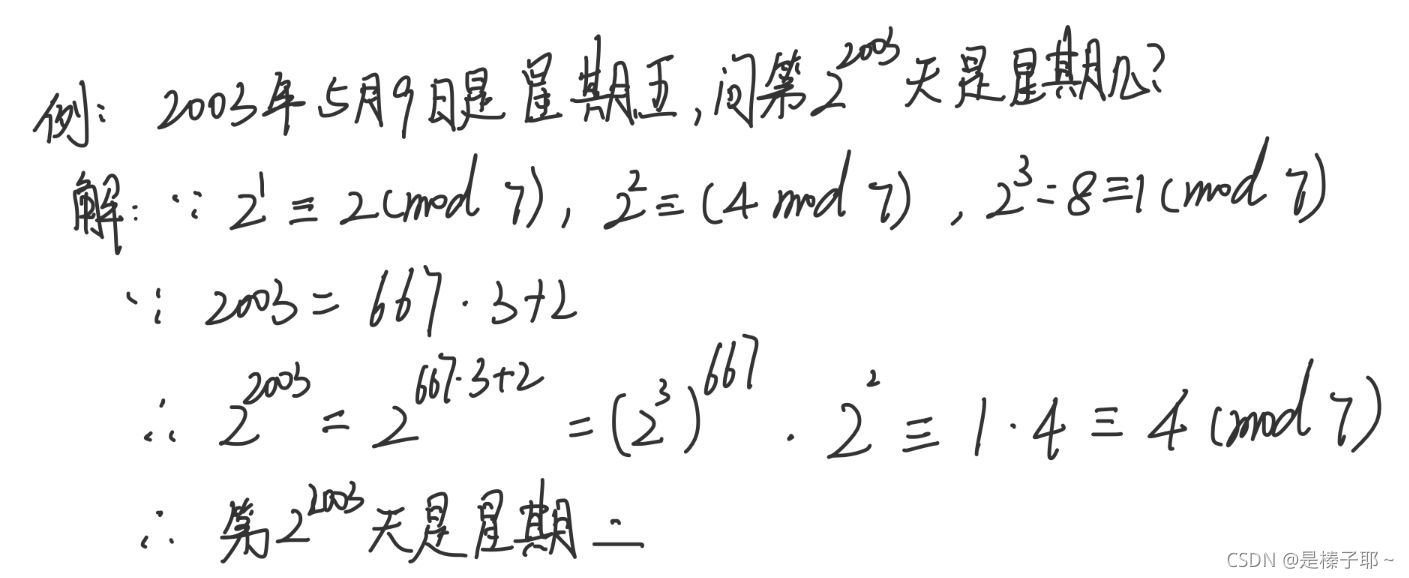 例: 2003年5月9日是星期五,问第2^2003天是星期几?
解: ∵ 2^1 ≡ 2(mod 7), 2^2 ≡ (4 mod 7) , 2^3 = 8 ≡ 1 (mod 7)
∵ 2003 = 667 · 3+2
∴ 2^2003 = 2^667·3+2 = (2^3)^667 · 2^2 ≡ 1 · 4 ≡ 4 (mod 7)
∴ 第2^2003天是星期二
CSDN @是榛子耶~